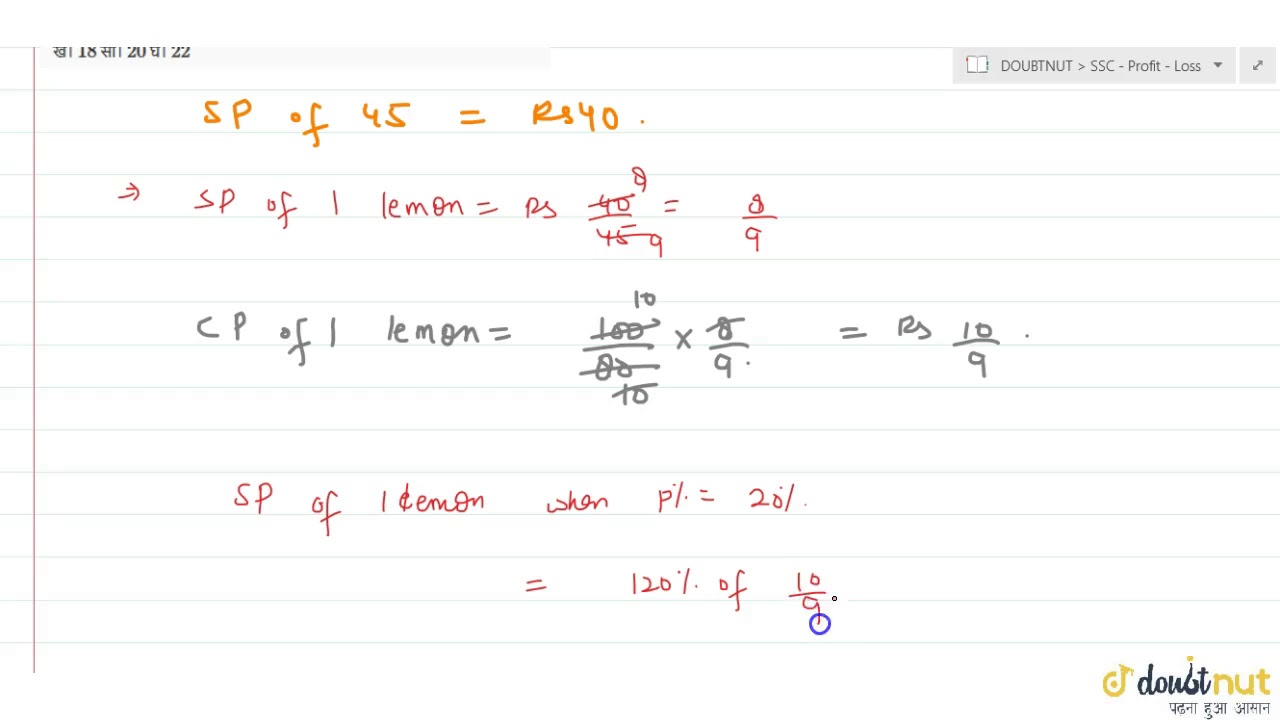 खा 18 सा 20 घा 22
DOUBTNUT > SSC - Profit - Loss
SP of 45 = Rs 40.
⇒ SP of 1 lemon = Rs 40/45 8/9 = 8/9
CP of 1 lemon = 100/80 10/10 × 8/9. = Rs 10/9.
SP of 1 lemon when p% = 20%.
= 120% of 10/9
doubtnut
पढ़ना हुआ आसान